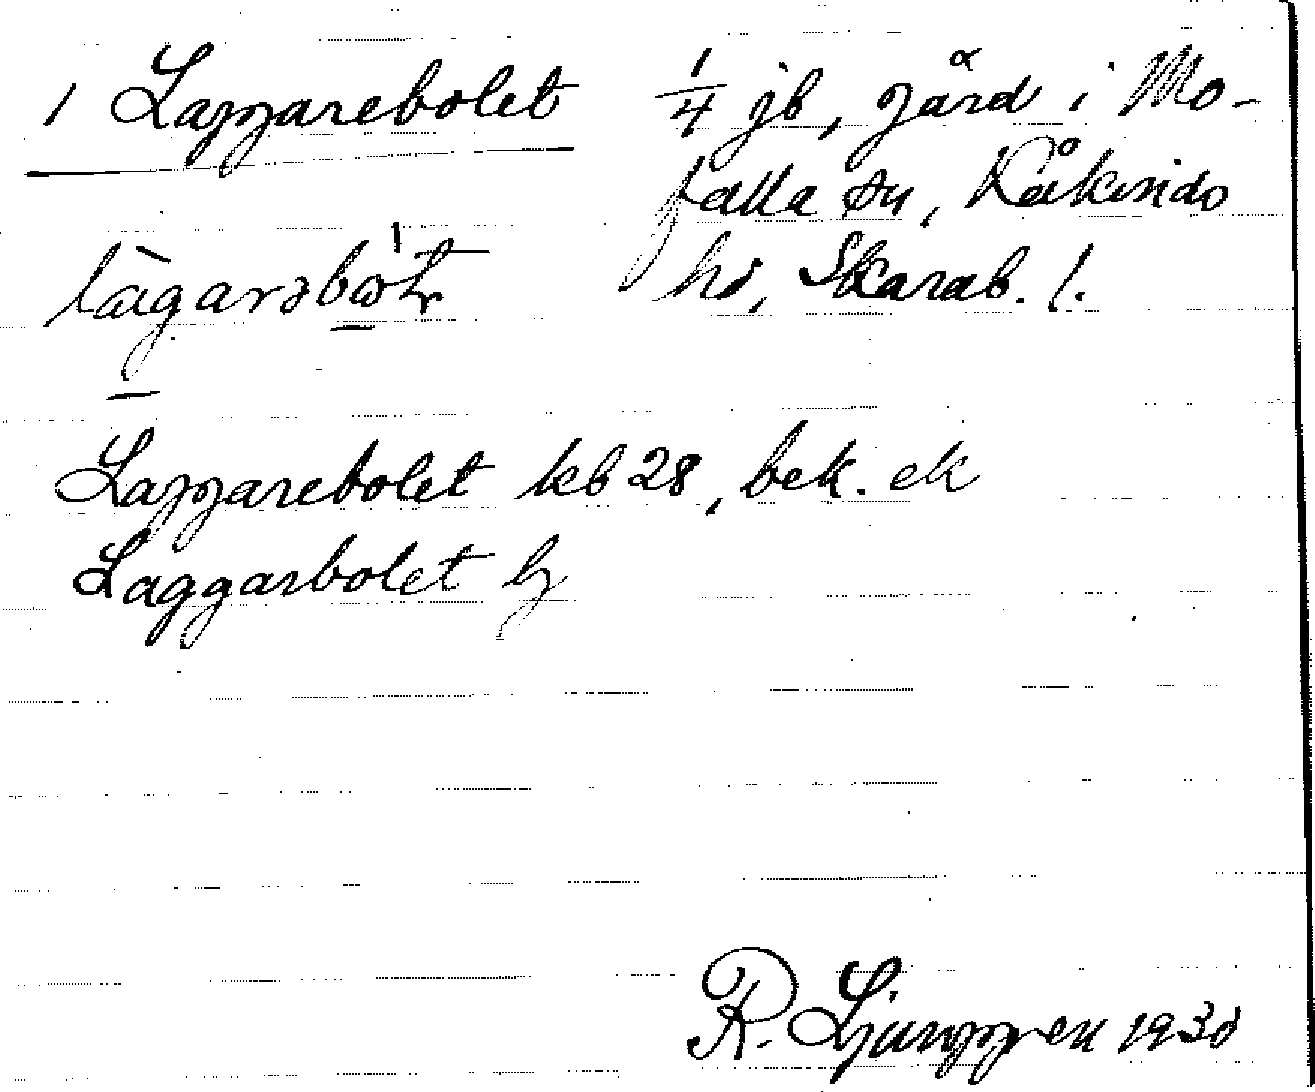 1 Laggarebolet
1/4 jb, gård i Mo-
falla sn, Kåkinds
hd, Skarab. l.
Laggarebolet kb 28, bek. ek
Laggarbolet
R. Ljunggren 1930